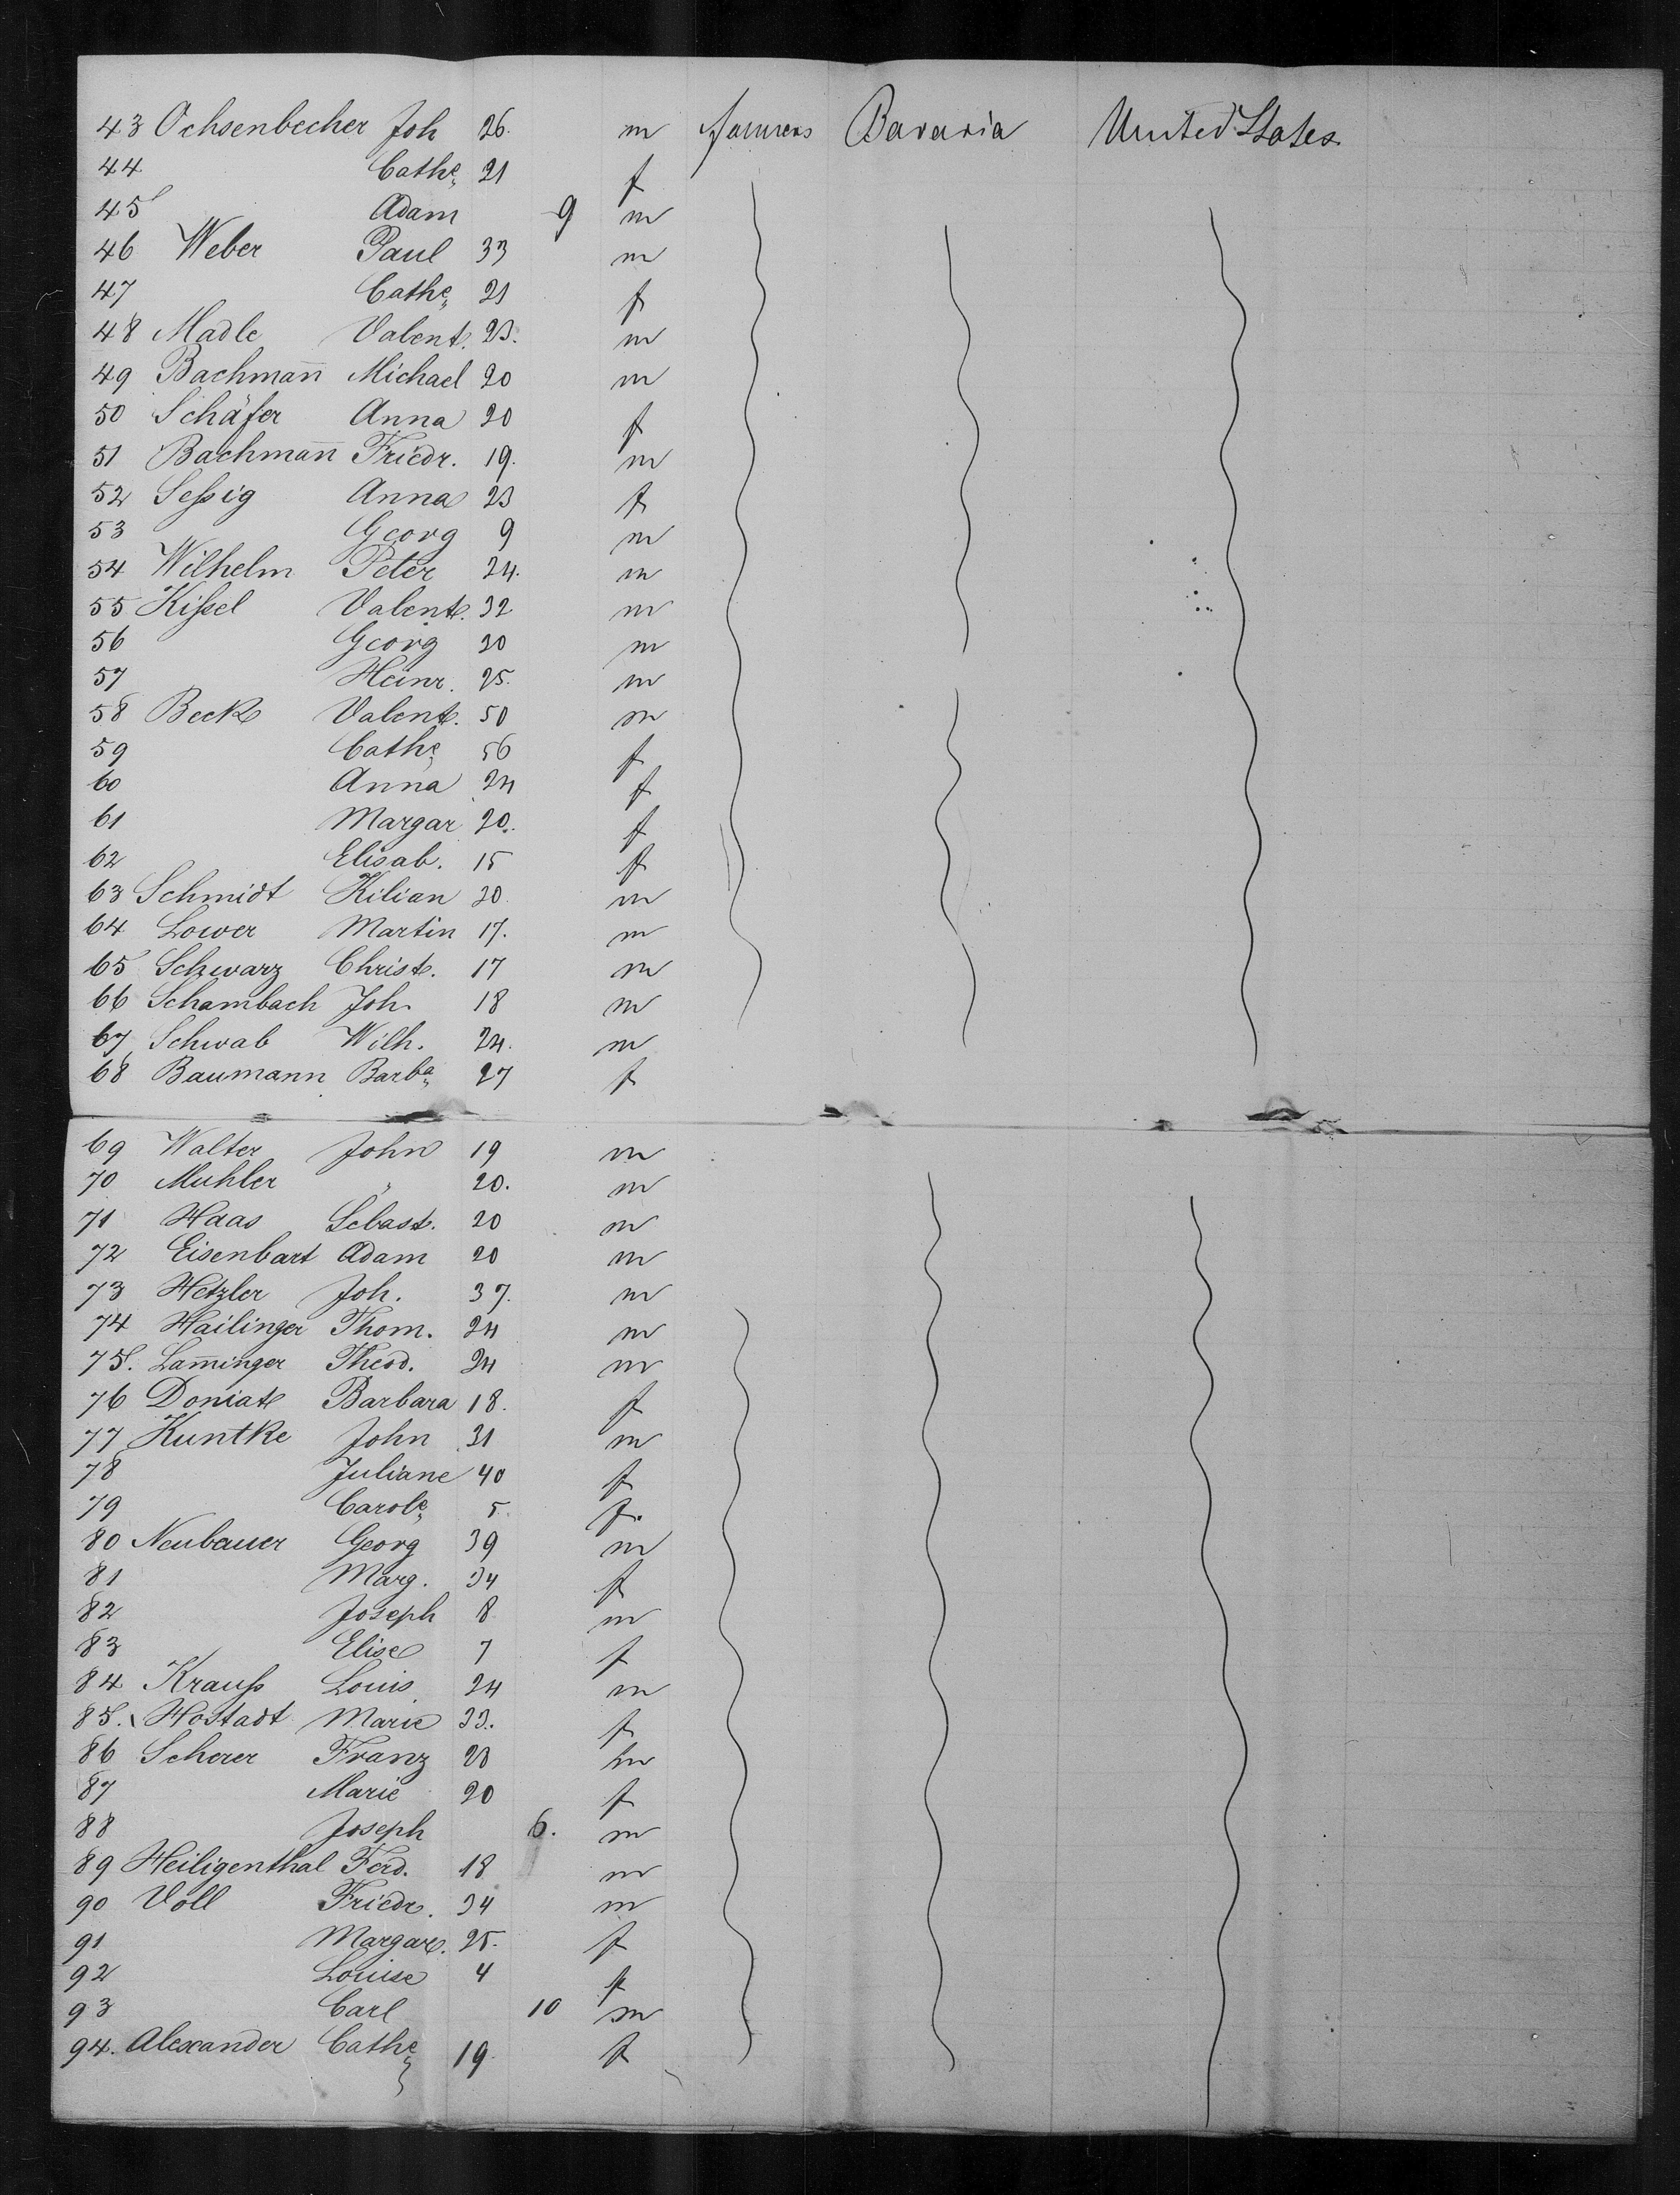 43 Ochsenbecher Joh 26. m farmers Bavaria United States
44 Cathe 21 f
45 Adam 9 m
46 Weber Paul 33 m
47 Cathe 21 f
48 Madle Valent. 23. m
49 Bachmañ Michael 20 m
50 Schäfer Anna 20 f
51 Bachmañ Friedr. 19. m
52 Seßig Anna 23 f
53 Georg 9 m
54 Wilhelm Peter 24. m
55 Kißel Valent. 32 m
56 Georg 30 m
57 Heinr. 25. m
58 Beck Valent. 50 m
59 Cathe 56 f
60 Anna 24 f
61 Margar 20. f
62 Elisab. 15 f
63 Schmidt Kilian 30. m
64 Lower Martin 17. m
65 Schwarz Christ. 17 m
66 Schambach Joh. 18 m
67 Schwab Wilh. 24. m
68 Baumann Barba 27 f
69 Walter John 19 m
70 Muhler " 20. m
71 Haas Sebast. 20 m
72 Eisenbart Adam 20 m
73 Hetzler Joh. 37. m
74 Hailinger Thom. 24 m
75. Lam̄inger Theod. 24 m
76 Doniat Barbara 18. f
77 Kuntke John 31 m
78 Juliane 40 f
79 Carole 5. f.
80 Neubauer Georg 39 m
81 Marg. 34 f
82 Joseph 8 m
83 Elise 7 f
84 Krauß Louis 24 m
85. Hostadt Marie 33. f
86 Scherer Franz 28 m
87 Marie 20 f
88 Joseph 6. m
89 Heiligenthal Ferd. 18 m
90 Voll Friedr. 34 m
91 Margar. 25. f
92 Louise 4 f
93 Carl 10 m
94. Alexander Cathe 19. f